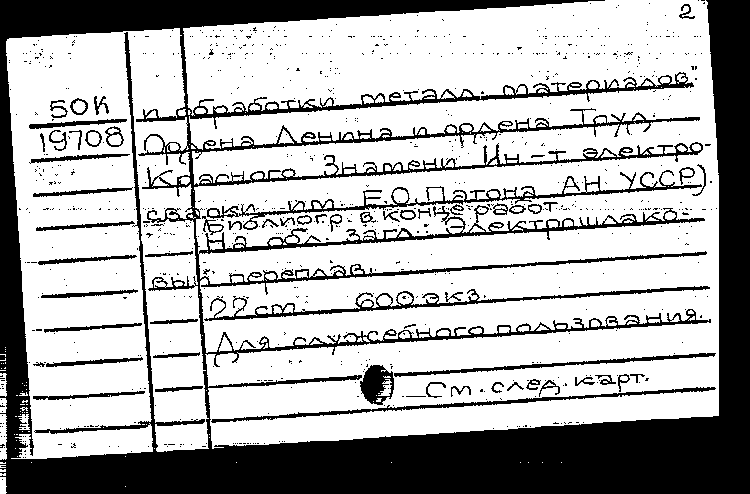 2
50К и обработки металл. материалов."
19708 Ордена Ленина и ордена Труд.
Красного Знамени Ин-т электро-
сварки им. Е.О.Патона АН УССР).
Библиогр. в конце работ.
На обл. загл.: Электрошлако-
вый переплав.
22 cm. 600 экз.
Для служебного пользования.
См. след. карт.